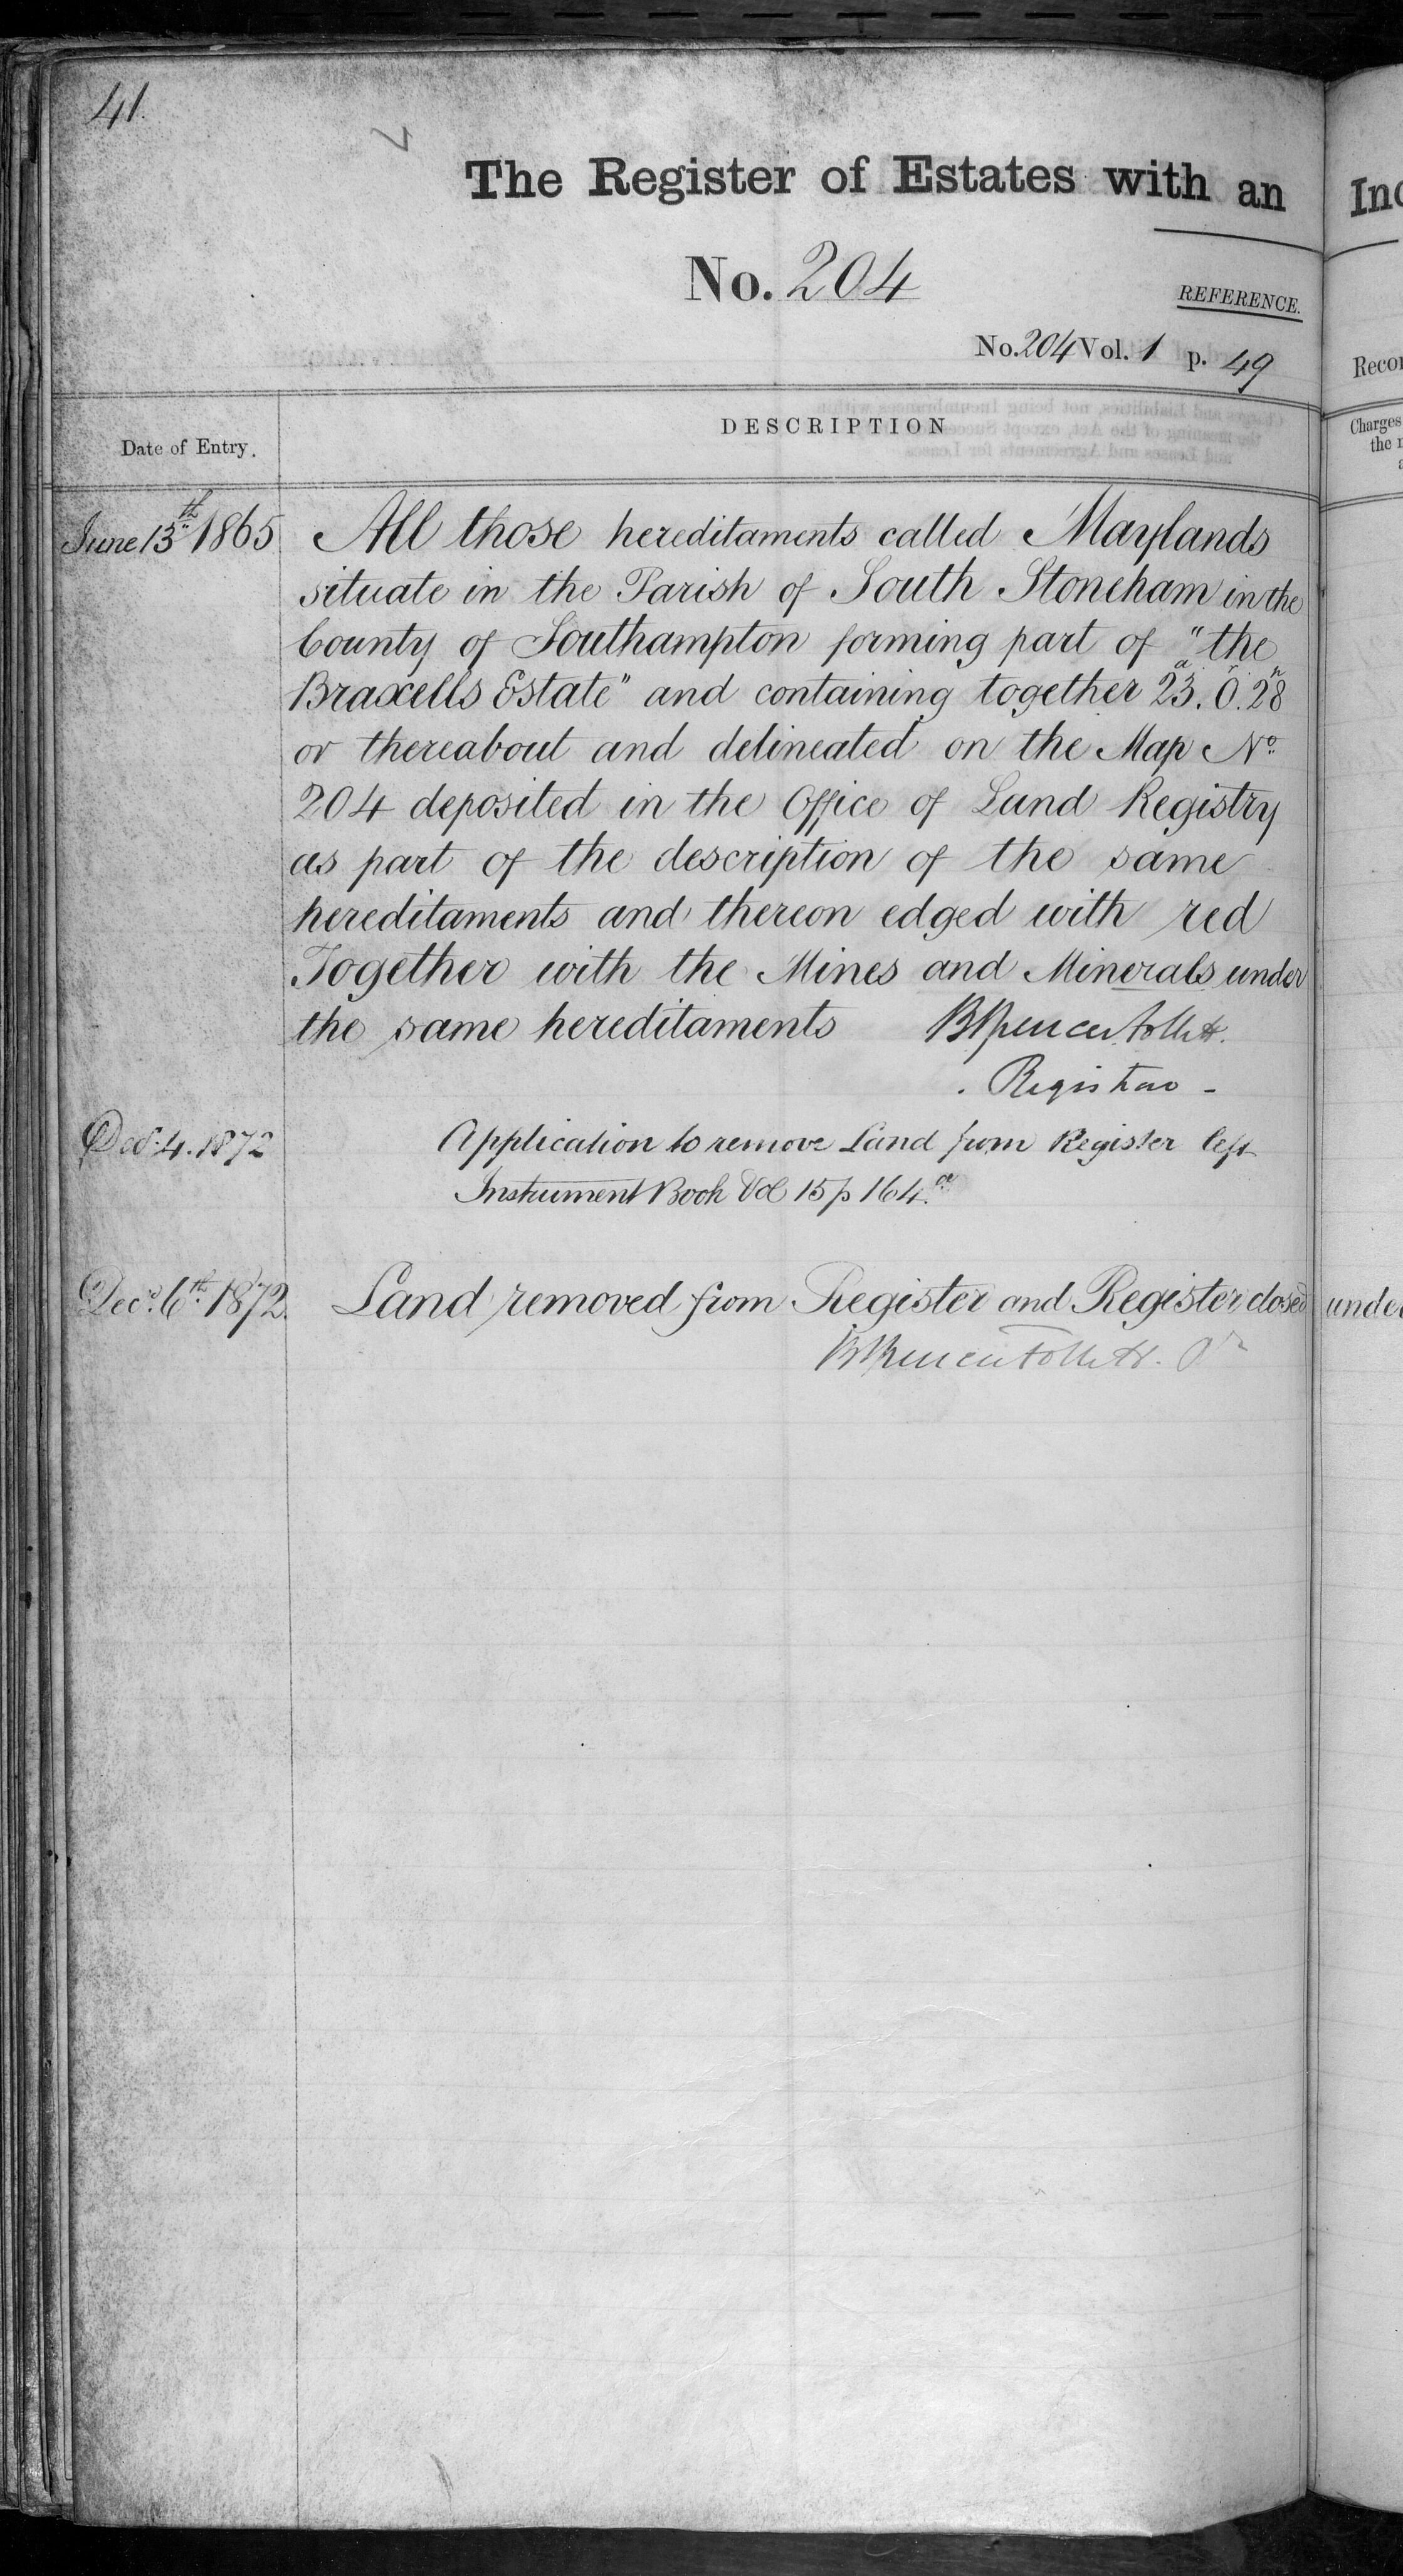 41.
The Register of Estates with an
No. 204
REFERENCE.
No. 204 Vol. 1 p. 49
Date of Entry.
DESCRIPTION
June 13th 1865 All those hereditaments called Maylands
situate in the Parish of South Stoneham in the
County of Southampton forming part of "the
Braxells Estate" and containing together 23a. 0r. 28
or thereabout and delineated on the Map No
204 deposited in the Office of Land Registry
as part of the description of the same
hereditaments and thereon edged with red
Together with the Mines and Minerals under
the same hereditaments BSpencer Follett.
Registrar -
4. 1872 Application to remove Land from Register left
Instrument Book Vol 15 p 164.
Decr. 6th 1872. Land removed from Register and Register closed
BSpencer Follett.
Charges
the